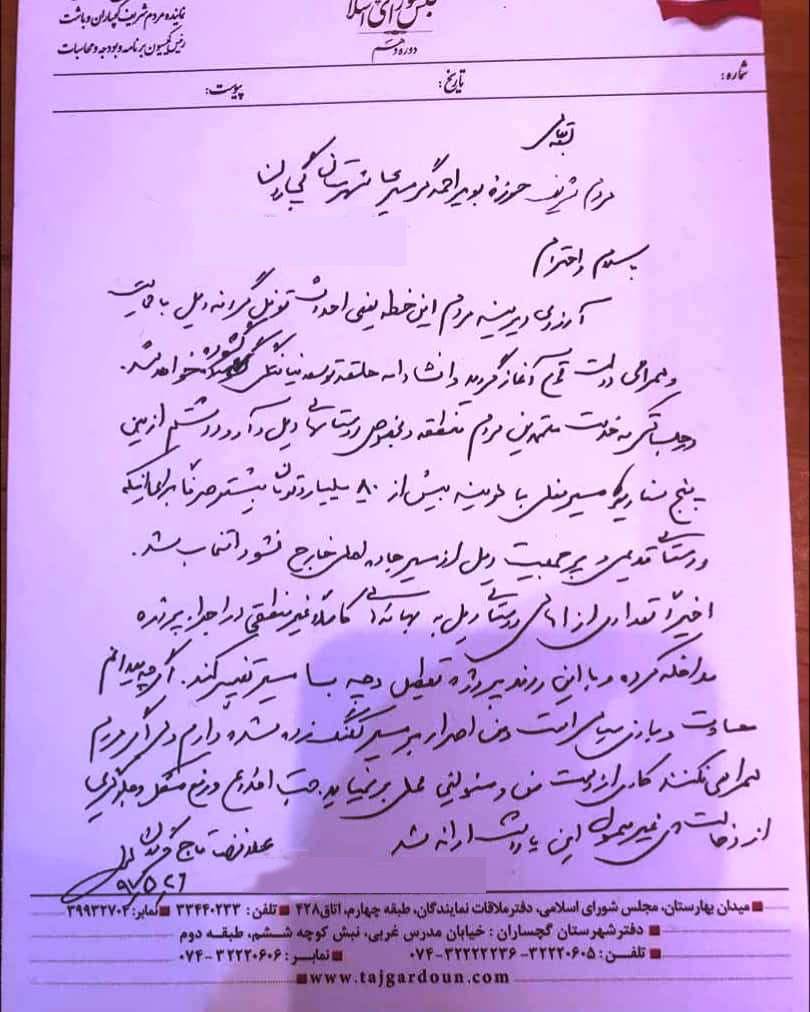 مجلس شورای اسلامی
دوره دهم
نماینده مردم شریف گچساران و باشت
رئیس کمیسیون برنامه و بودجه و محاسبات
شماره:
تاریخ:
پیوست:
بسمه تعالی
مردم شریف حوزه بویراحمد گرمسیر شهرستان گچساران
باسلام و احترام
آرزوی دیرینه مردم این خطه یعنی احداث تونل گردنه دیل با حمایت
و همراهی دولت آغاز گردید و انشاءاله حلقه توسعه نیافتگی گشوده خواهد شد.
در جلساتی که خدمت معتمدین مردم منطقه و بخصوص روستاهای دیل و آرو داشتم از بین
پنج سناریو مسیر فعلی با هزینه بیش از ۸۰ میلیارد تومان بیشتر صرفاً برای اینکه
روستای قدیمی و پر جمعیت دیل از مسیر جاده اصلی خارج نشود انتخاب شد.
اخیراً تعدادی از اهالی روستای دیل به بهانه‌هایی کاملاً غیر منطقی در اجرا پروژه
مداخله کرده و با این روند پروژه تعطیل و چه بسا مسیر تغییر کند. اگرچه میدانم
و بازی سیاسی است و من اصرار بر مسیر کلنگ زده شده دارم ولی اگر مردم
همراهی نکنند کاری از دست من و مسئولین محلی بر نمیاید. جهت اطلاع و رفع مشکل و جلوگیری
از دخالت‌های غیر مسئول این یادداشت ارائه شد
غلامرضا تاجگردون
۹۷/۵/۲۶
میدان بهارستان، مجلس شورای اسلامی، دفتر ملاقات نمایندگان، طبقه چهارم، اتاق ۴۲۸ تلفن: ۳۳۴۴۰۲۳۳ نمابر: ۳۹۹۳۲۷۰۲
دفتر شهرستان گچساران : خیابان مدرس غربی، نبش کوچه ششم، طبقه دوم
تلفن: ۳۲۲۲۰۶۰۵- ۳۲۲۲۲۲۳۶-۰۷۴ نمابر: ۳۲۲۲۰۶۰۶-۰۷۴
www.tajgardoun.com